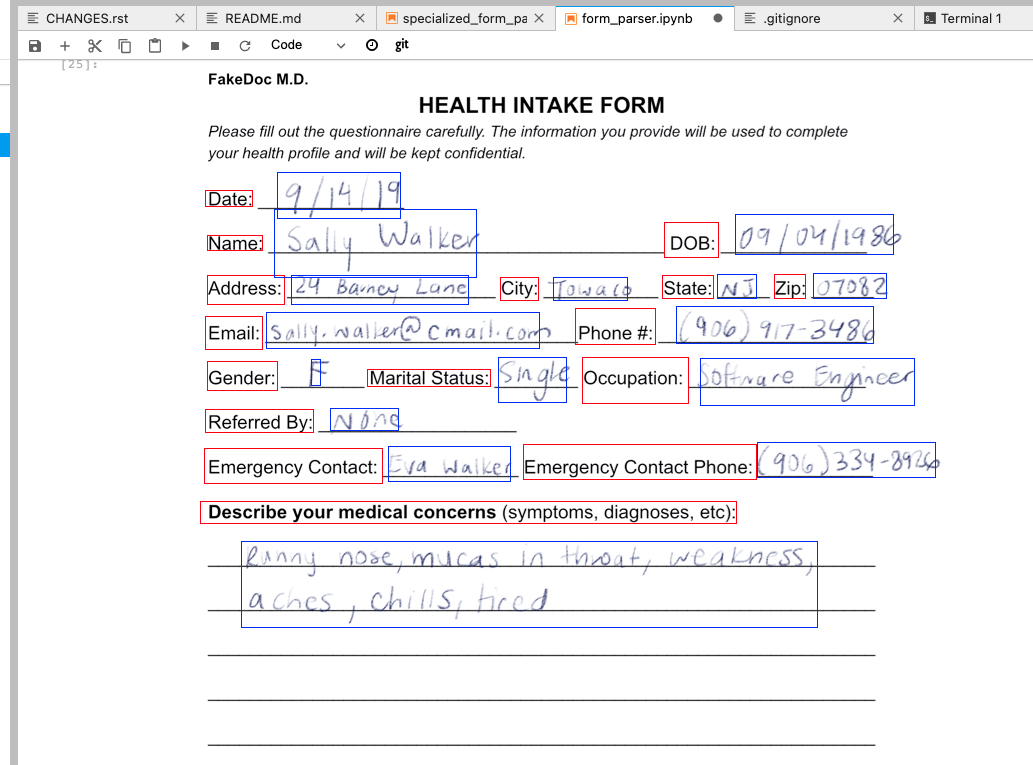 CHANGES.rst README.md specialized_form_pa form_parser.ipynb .gitignore Terminal 1
Code git
[25]:
FakeDoc M.D.
HEALTH INTAKE FORM
Please fill out the questionnaire carefully. The information you provide will be used to complete
your health profile and will be kept confidential.
Date: 9/14/19
Name: Sally Walker DOB: 09/04/1986
Address: 24 Barney Lane City: Towaco State: NJ Zip: 07082
Email: Sally.waller@cmail.com Phone #: (906) 917-3486
Gender: F Marital Status: Single Occupation: Software Engineer
Referred By: None
Emergency Contact: Eva Walker Emergency Contact Phone: (906)334-8926
Describe your medical concerns (symptoms, diagnoses, etc):
Runny nose, mucas in throat, weakness,
aches, chills, tired